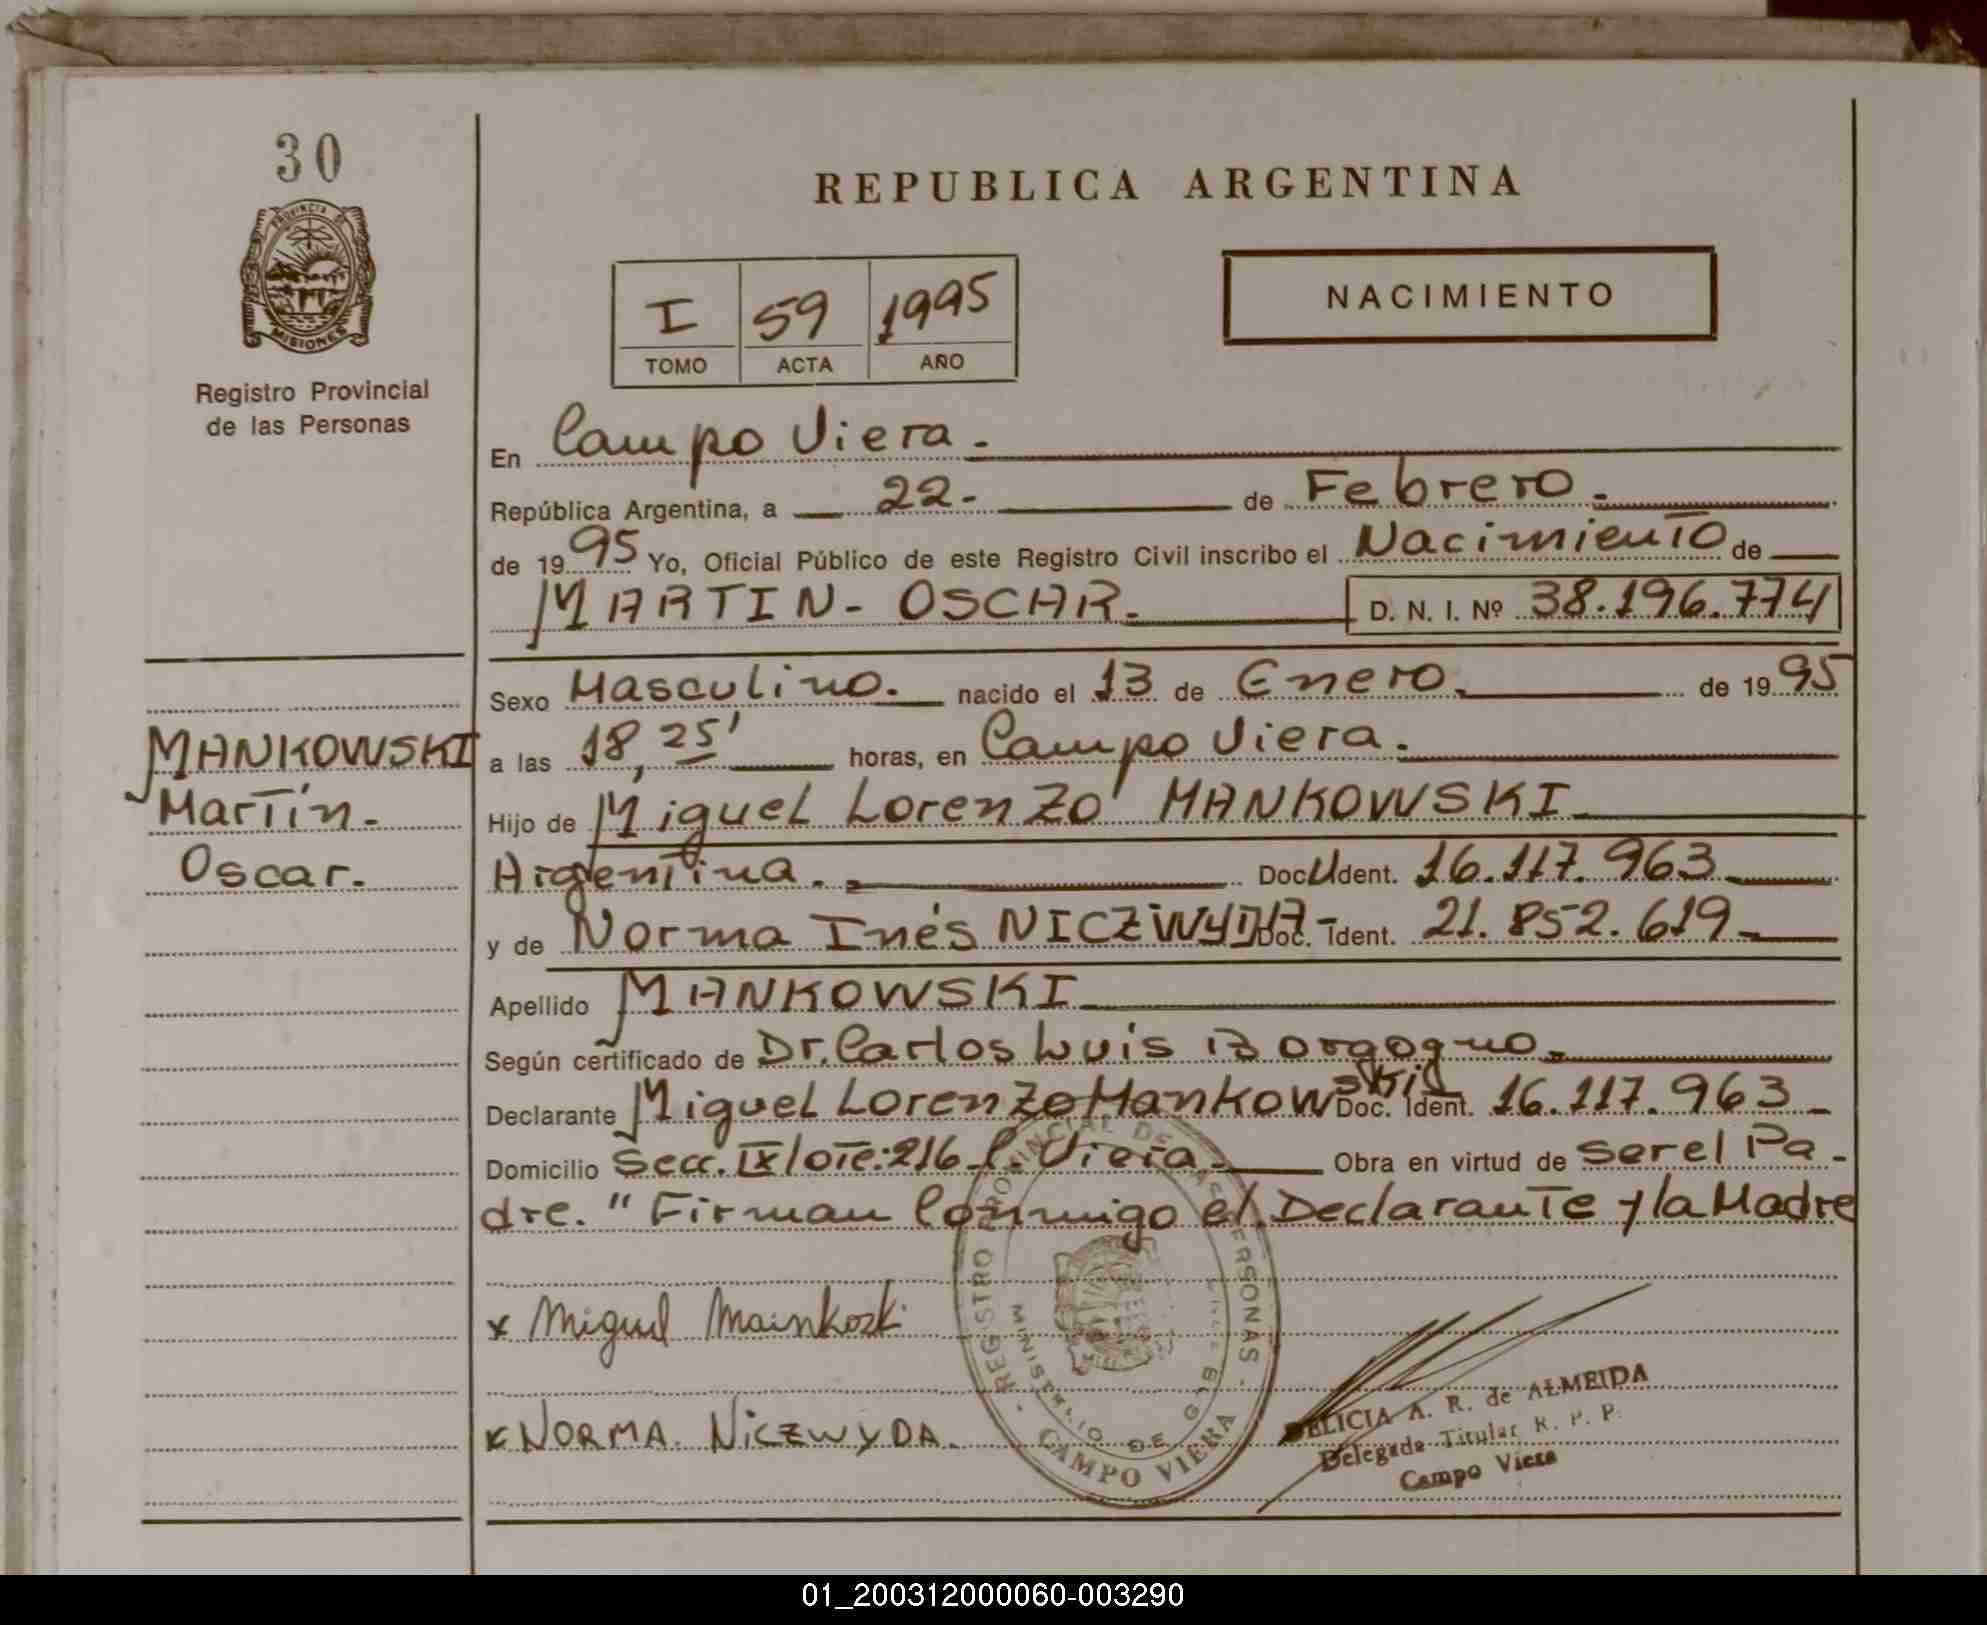 30
PROVINCIA DE
MISIONES
Registro Provincial
de las Personas
REPUBLICA ARGENTINA
I 59 1995
TOMO ACTA AÑO
NACIMIENTO
En Campo Viera.
República Argentina, a 22- de Febrero.
de 1995 Yo, Oficial Público de este Registro Civil inscribo el Nacimiento de
MARTIN- OSCAR. D. N. I. Nº 38.196.774
Sexo Masculino. nacido el 13 de Enero. de 1995
MANKOWSKI
Martín.
Oscar.
a las 18,25' horas, en Campo Viera.
Hijo de Miguel Lorenzo MANKOWSKI
Argentina. Doc. Ident. 16.117.963
y de Norma Inés NICZWYDA- Doc. Ident. 21.852.619
Apellido MANKOWSKI
Según certificado de Dr. Carlos Luis Borgogno.
Declarante Miguel Lorenzo Mankowski Doc. Ident. 16.117.963
Domicilio Secc. IX lote: 216 C. Viera. Obra en virtud de ser el Pa-
dre. " Firman Conmigo el Declarante y la Madre
x Miguel Mainkoski
x NORMA. NICZWYDA.
REGISTRO PROVINCIAL DE LAS PERSONAS
MINISTERIO DE
CAMPO VIERA
DELICIA A. R. de ALMEIDA
Delegada Titular R. P. P.
Campo Viera
01_200312000060-003290